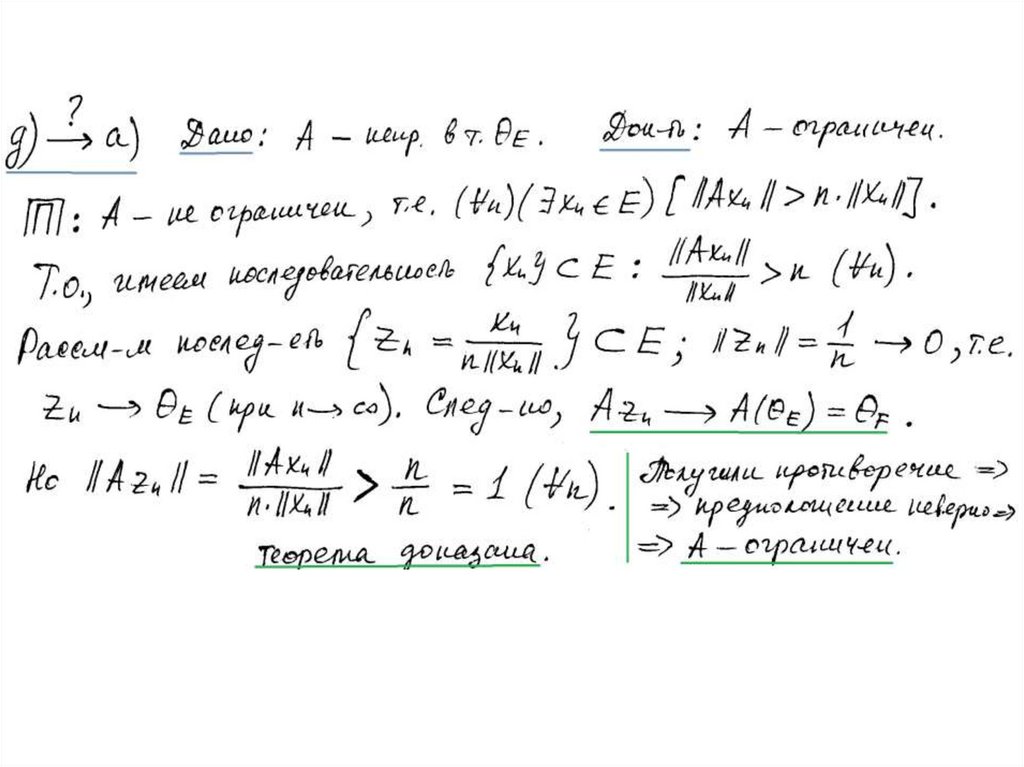 д) ?→ а) Дано: A – непр. в т. θ_E. Док-ть: A – ограничен.
П: A – не ограничен, т.е. (∀n)(∃x_n ∈ E) [ ||Ax_n|| > n·||x_n|| ].
Т.о., имеем последовательность {x_n} ⊂ E : ||Ax_n|| / ||x_n|| > n (∀n).
Рассм-м послед-сть { z_n = x_n / n||x_n|| . } ⊂ E ; ||z_n|| = 1/n → 0, т.е.
z_n → θ_E (при n → ∞). След-но, Az_n → A(θ_E) = θ_F .
Но ||Az_n|| = ||Ax_n|| / n·||x_n|| > n/n = 1 (∀n) .
Получили противоречие =>
=> предположение неверно =>
=> A – ограничен.
Теорема доказана.